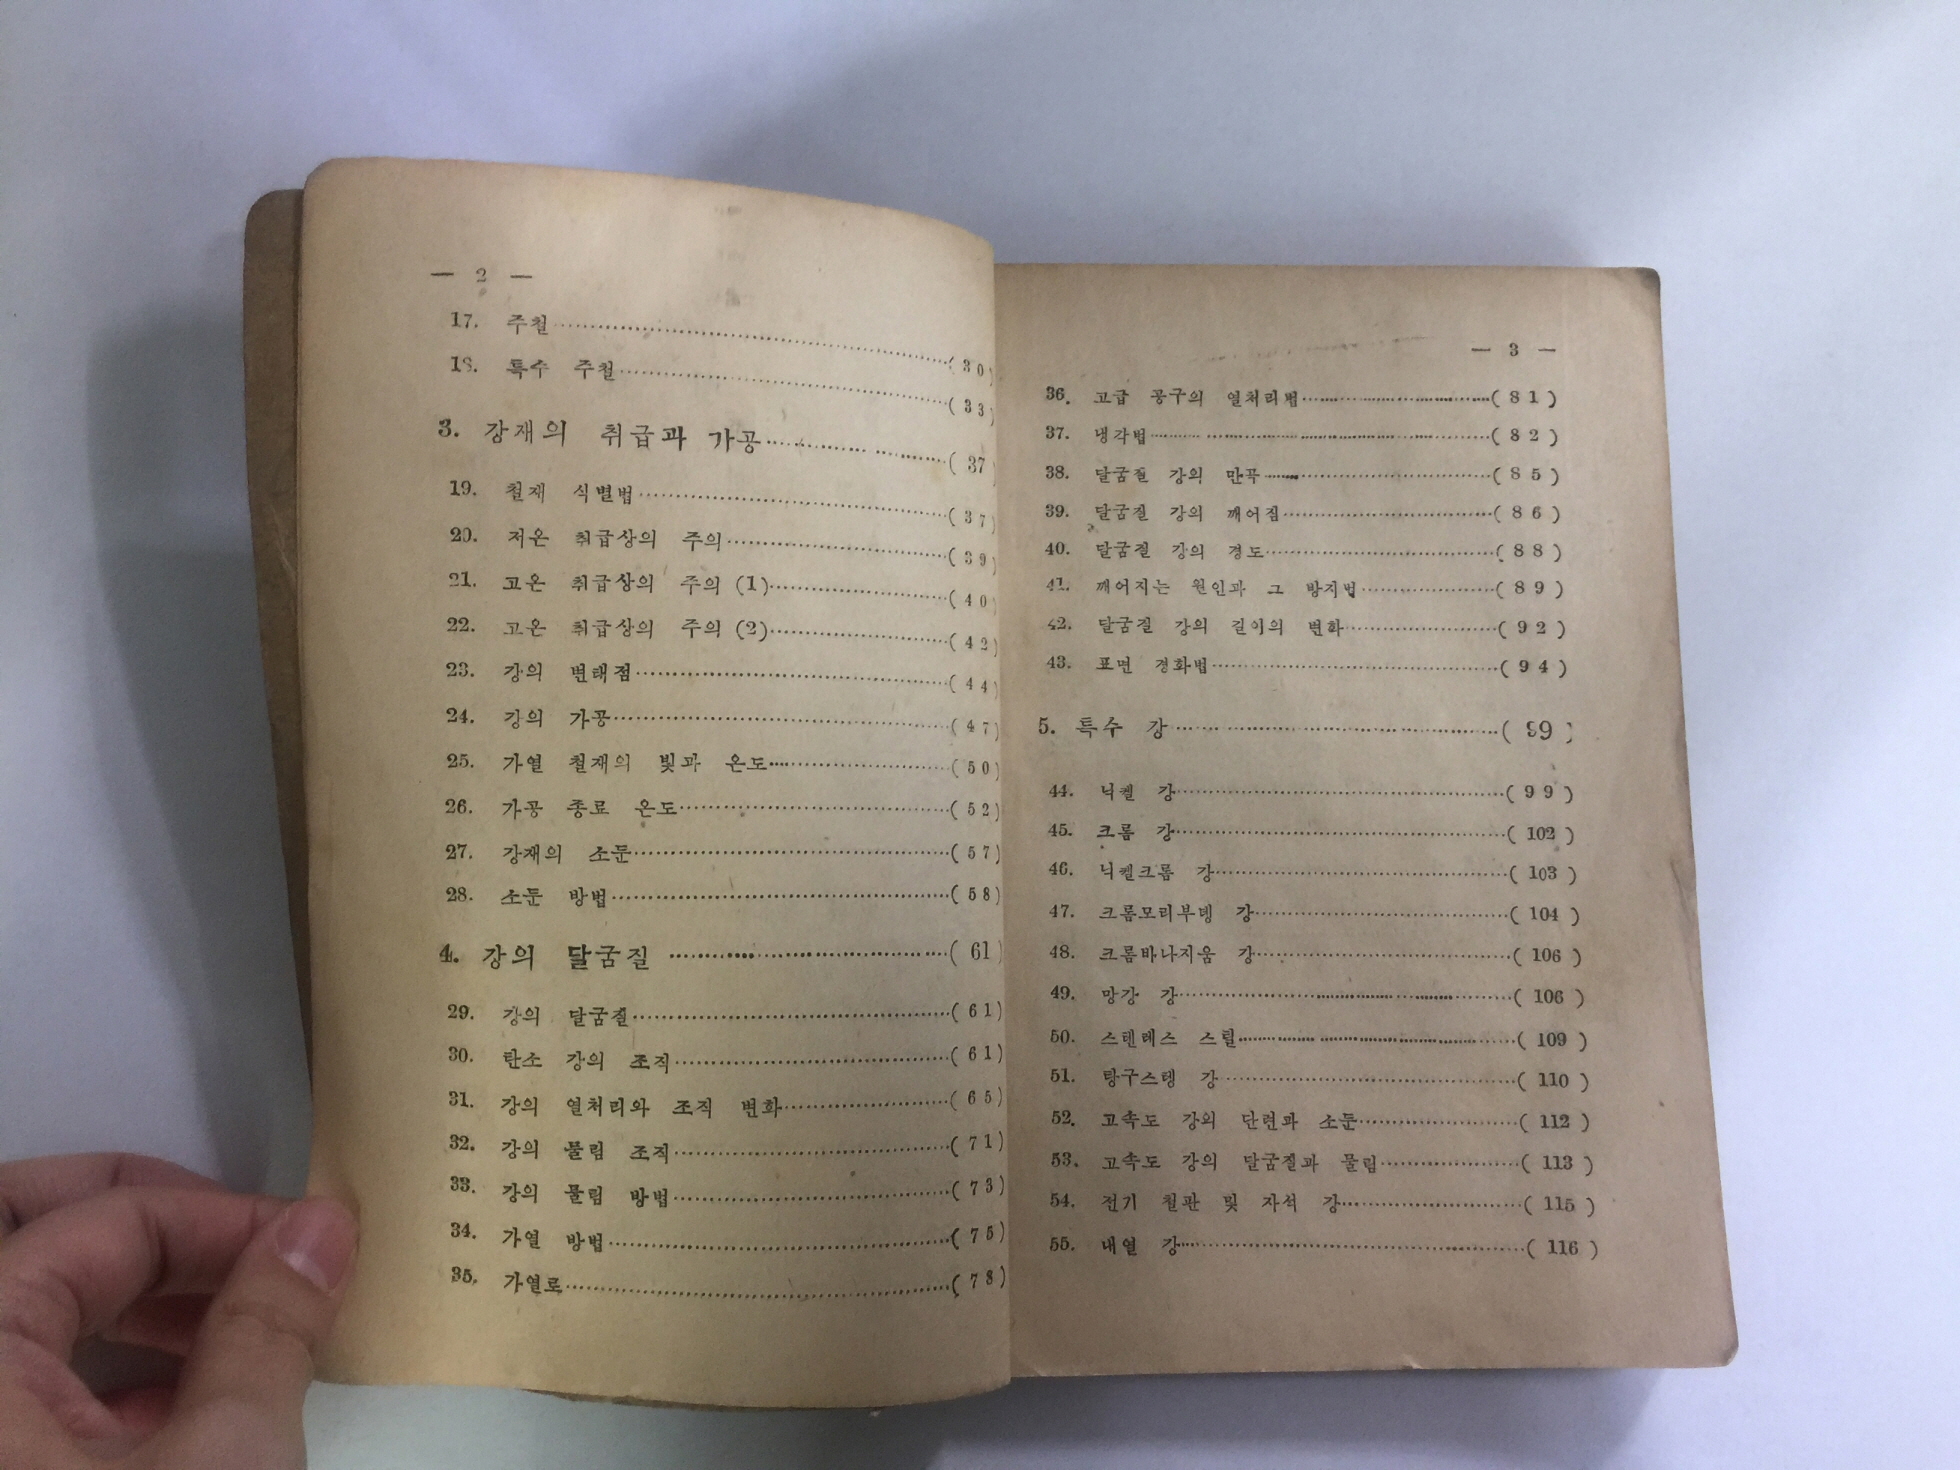 — 2 —
17. 주철 ( 30 )
18. 특수 주철 ( 33 )
3. 강재의 취급과 가공 ( 37 )
19. 철재 식별법 ( 37 )
20. 저온 취급상의 주의 ( 39 )
21. 고온 취급상의 주의 (1) ( 40 )
22. 고온 취급상의 주의 (2) ( 42 )
23. 강의 변태점 ( 44 )
24. 강의 가공 ( 47 )
25. 가열 철재의 빛과 온도 ( 50 )
26. 가공 종료 온도 ( 52 )
27. 강재의 소둔 ( 57 )
28. 소둔 방법 ( 58 )
4. 강의 달굼질 ( 61 )
29. 강의 달굼질 ( 61 )
30. 탄소 강의 조직 ( 61 )
31. 강의 열처리와 조직 변화 ( 65 )
32. 강의 물림 조직 ( 71 )
33. 강의 물림 방법 ( 73 )
34. 가열 방법 ( 75 )
35. 가열로 ( 78 )
— 3 —
36. 고급 공구의 열처리법 ( 81 )
37. 냉각법 ( 82 )
38. 달굼질 강의 만곡 ( 85 )
39. 달굼질 강의 깨어짐 ( 86 )
40. 달굼질 강의 경도 ( 88 )
41. 깨어지는 원인과 그 방지법 ( 89 )
42. 달굼질 강의 길이의 변화 ( 92 )
43. 표면 경화법 ( 94 )
5. 특수 강 ( 99 )
44. 닉켈 강 ( 99 )
45. 크롬 강 ( 102 )
46. 닉켈크롬 강 ( 103 )
47. 크롬모리부뎅 강 ( 104 )
48. 크롬바나지움 강 ( 106 )
49. 망강 강 ( 106 )
50. 스텐레스 스틸 ( 109 )
51. 탕구스텡 강 ( 110 )
52. 고속도 강의 단련과 소둔 ( 112 )
53. 고속도 강의 달굼질과 물림 ( 113 )
54. 전기 철판 및 자석 강 ( 115 )
55. 내열 강 ( 116 )